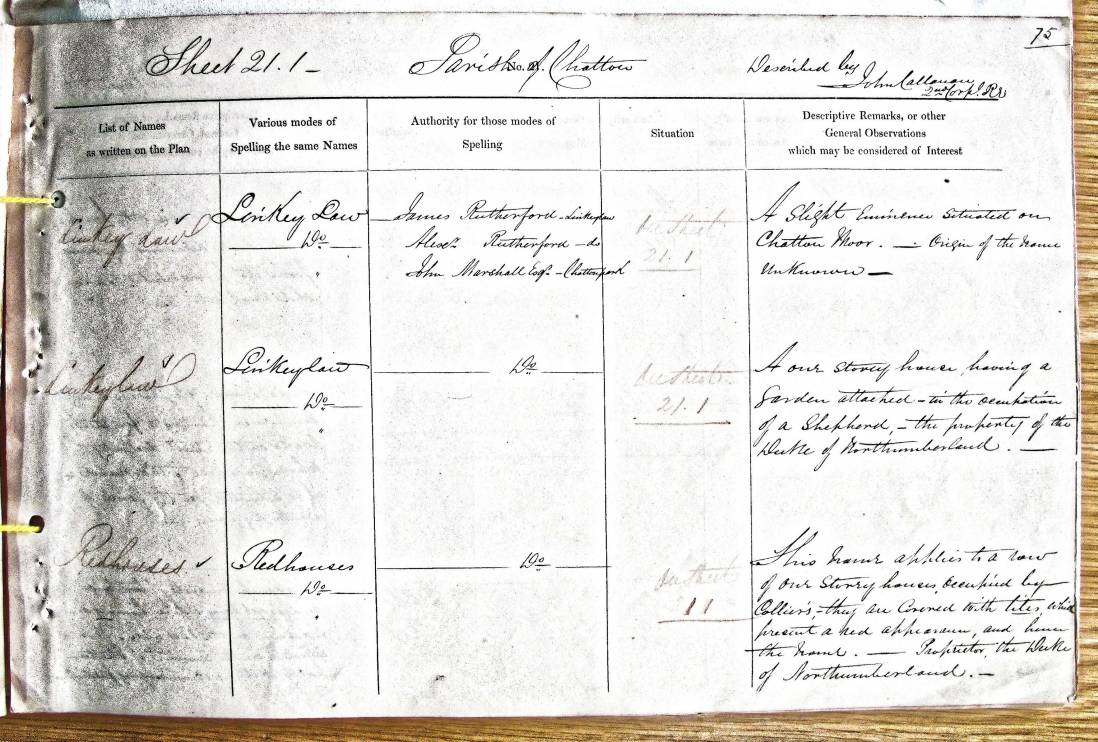 75
Sheet 21.1 -
Parish of Chatton
No.
Described by
John Callanan
2nd Corpl. RE
List of Names
as written on the Plan
Various modes of
Spelling the same Names
Authority for those modes of
Spelling
Situation
Descriptive Remarks, or other
General Observations
which may be considered of Interest
Linkey Law
Linkey Law
Do
"
James Rutherford - Linkeylaw
Alexr. Rutherford - do
John Marshall Esqr. - Chattonpark
On Sheet
21.1
A Slight Eminence Situated on
Chatton Moor. — Origin of the Name
Unknown —
Linkeylaw
Linkeylaw
Do
"
Do
On Sheet
21.1
A one Storey house, having a
Garden attached - in the occupation
of a Shepherd, - the property of the
Duke of Northumberland. —
Redhouses
Redhouses
Do
"
Do
On Sheet
11
This Name applies to a row
of one Storey houses, occupied by
Colliers, - they are Covered with tiles, which
present a red appearance, and hence
the Name. — Proprietor, the Duke
of Northumberland. —